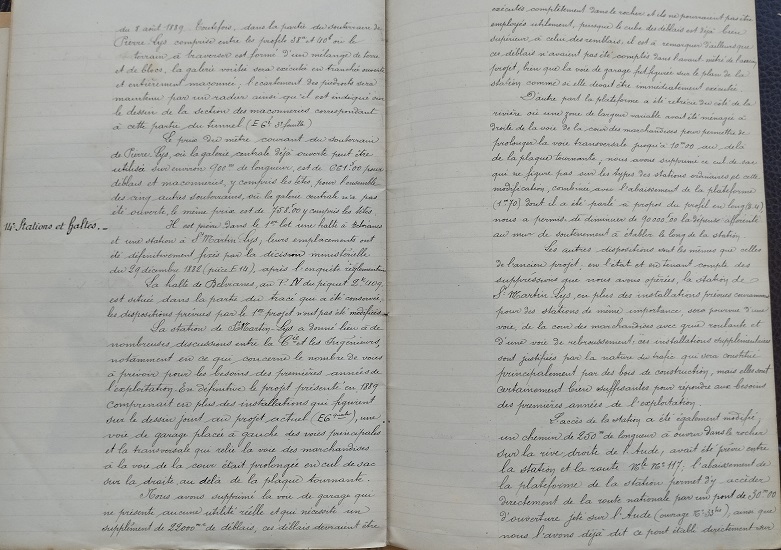 du 8 août 1889. Toutefois, dans la partie du souterrain de
Pierre Lys comprise entre les profils 38 et 40 où le
terrain à traverser est formé d'un mélange de terre
et de blocs, la galerie voûtée sera exécutée en tranchée ouverte
et entièrement maçonnée, l'écartement des piédroits sera
maintenu par un radier ainsi qu'il est indiqué sur
le dessin de la section des maçonneries correspondant
à cette partie du tunnel (E 6 3e feuille)
Le prix du mètre courant du souterrain
de Pierre Lys, où la galerie centrale déjà ouverte peut être
utilisée sur environ 900m de longueur, est de pour
déblais et maçonneries, y compris les têtes, pour l'ensemble
des cinq autres souterrains, où la galerie centrale n'a pas
été ouverte, le même prix est de 758.00 y compris les têtes
14° Stations et Haltes. _ Il est prévu dans le 1er lot une halte à Belvianes
et une station à St Martin-Lys; leurs emplacements ont
été définitivement fixés par la décision ministérielle
du 29 décembre 1882 (pièce F. 14), après l'enquête réglementaire
La halte de Belvianes, au P.N du piquet 2K.409.
est située dans la partie du tracé qui a été conservée,
les dispositions prévues par le 1er projet n'ont pas été modifiées
La station de St Martin-Lys a donné lieu à de
nombreuses discussions entre la Cie et les Ingénieurs,
notamment en ce qui concerne le nombre de voies
à prévoir pour les besoins des premières années de
l'exploitation. En définitive le projet présenté en 1889
comprenait en plus des installations qui figurent
sur le dessin joint au projet actuel (E 6), une
voie de garage placée à gauche des voies principales
et la transversale qui relie la voie des marchandises
à la voie de la cour était prolongée en cul de sac
sur la droite au delà de la plaque tournante.
Nous avons supprimé la voie de garage qui
ne présente aucune utilité réelle et qui nécessite un
supplément de 22000mc de déblais, ces déblais devraient être
exécutés complètement dans le rocher et ils ne pourraient pas être
employés utilement, puisque le cube des déblais est déjà bien
supérieur à celui des remblais, il est à remarquer d'ailleurs que
ces déblais n'avaient pas été comptés dans l'avant métré de l'ancien
projet, bien que la voie de garage fut figurée sur le plan de la
station comme si elle devait être immédiatement exécutée.
D'autre part la plateforme a été rétrécie du côté de la
rivière où une zone de largeur variable avait été ménagée à
droite de la voie de la cour des marchandises pour permettre de
prolonger la voie transversale jusqu'à 10m00 au delà
de la plaque tournante, nous avons supprimé ce cul de sac
qui ne figure pas sur les types des stations ordinaires et cette
modification, combinée avec l'abaissement de la plateforme
(1m70) dont il a été parlé à propos du profil en long (§ 4)
nous a permis de diminuer de 90000.00 la dépense afférente
au mur de soutènement à établir le long de la station.
Les autres dispositions sont les mêmes que celles
de l'ancien projet; en l'état et en tenant compte des
suppressions que nous avons opérées, la station de
St Martin Lys, en plus des installations prévues
pour des stations de même importance, sera pourvue d'une
voie de la cour des marchandises avec grue roulante et
d'une voie de rebroussement; ces installations supplémentaires
sont justifiées par la nature du trafic qui sera constitué
principalement par des bois de construction, mais elles sont
certainement bien suffisantes pour répondre aux besoins
des premières années de l'exploitation.
L'accès de la station a été également modifié,
un chemin de 250m de longueur à ouvrir dans le rocher
sur la rive droite de l'Aude, avait été prévu entre
la station et la route Nle No 117. l'abaissement de
la plateforme de la station permet d'y accéder
directement de la route nationale par un pont de 30m00
d'ouverture jeté sur l'Aude (ouvrage), ainsi que
nous l'avons déjà dit ce pont établi directement sur